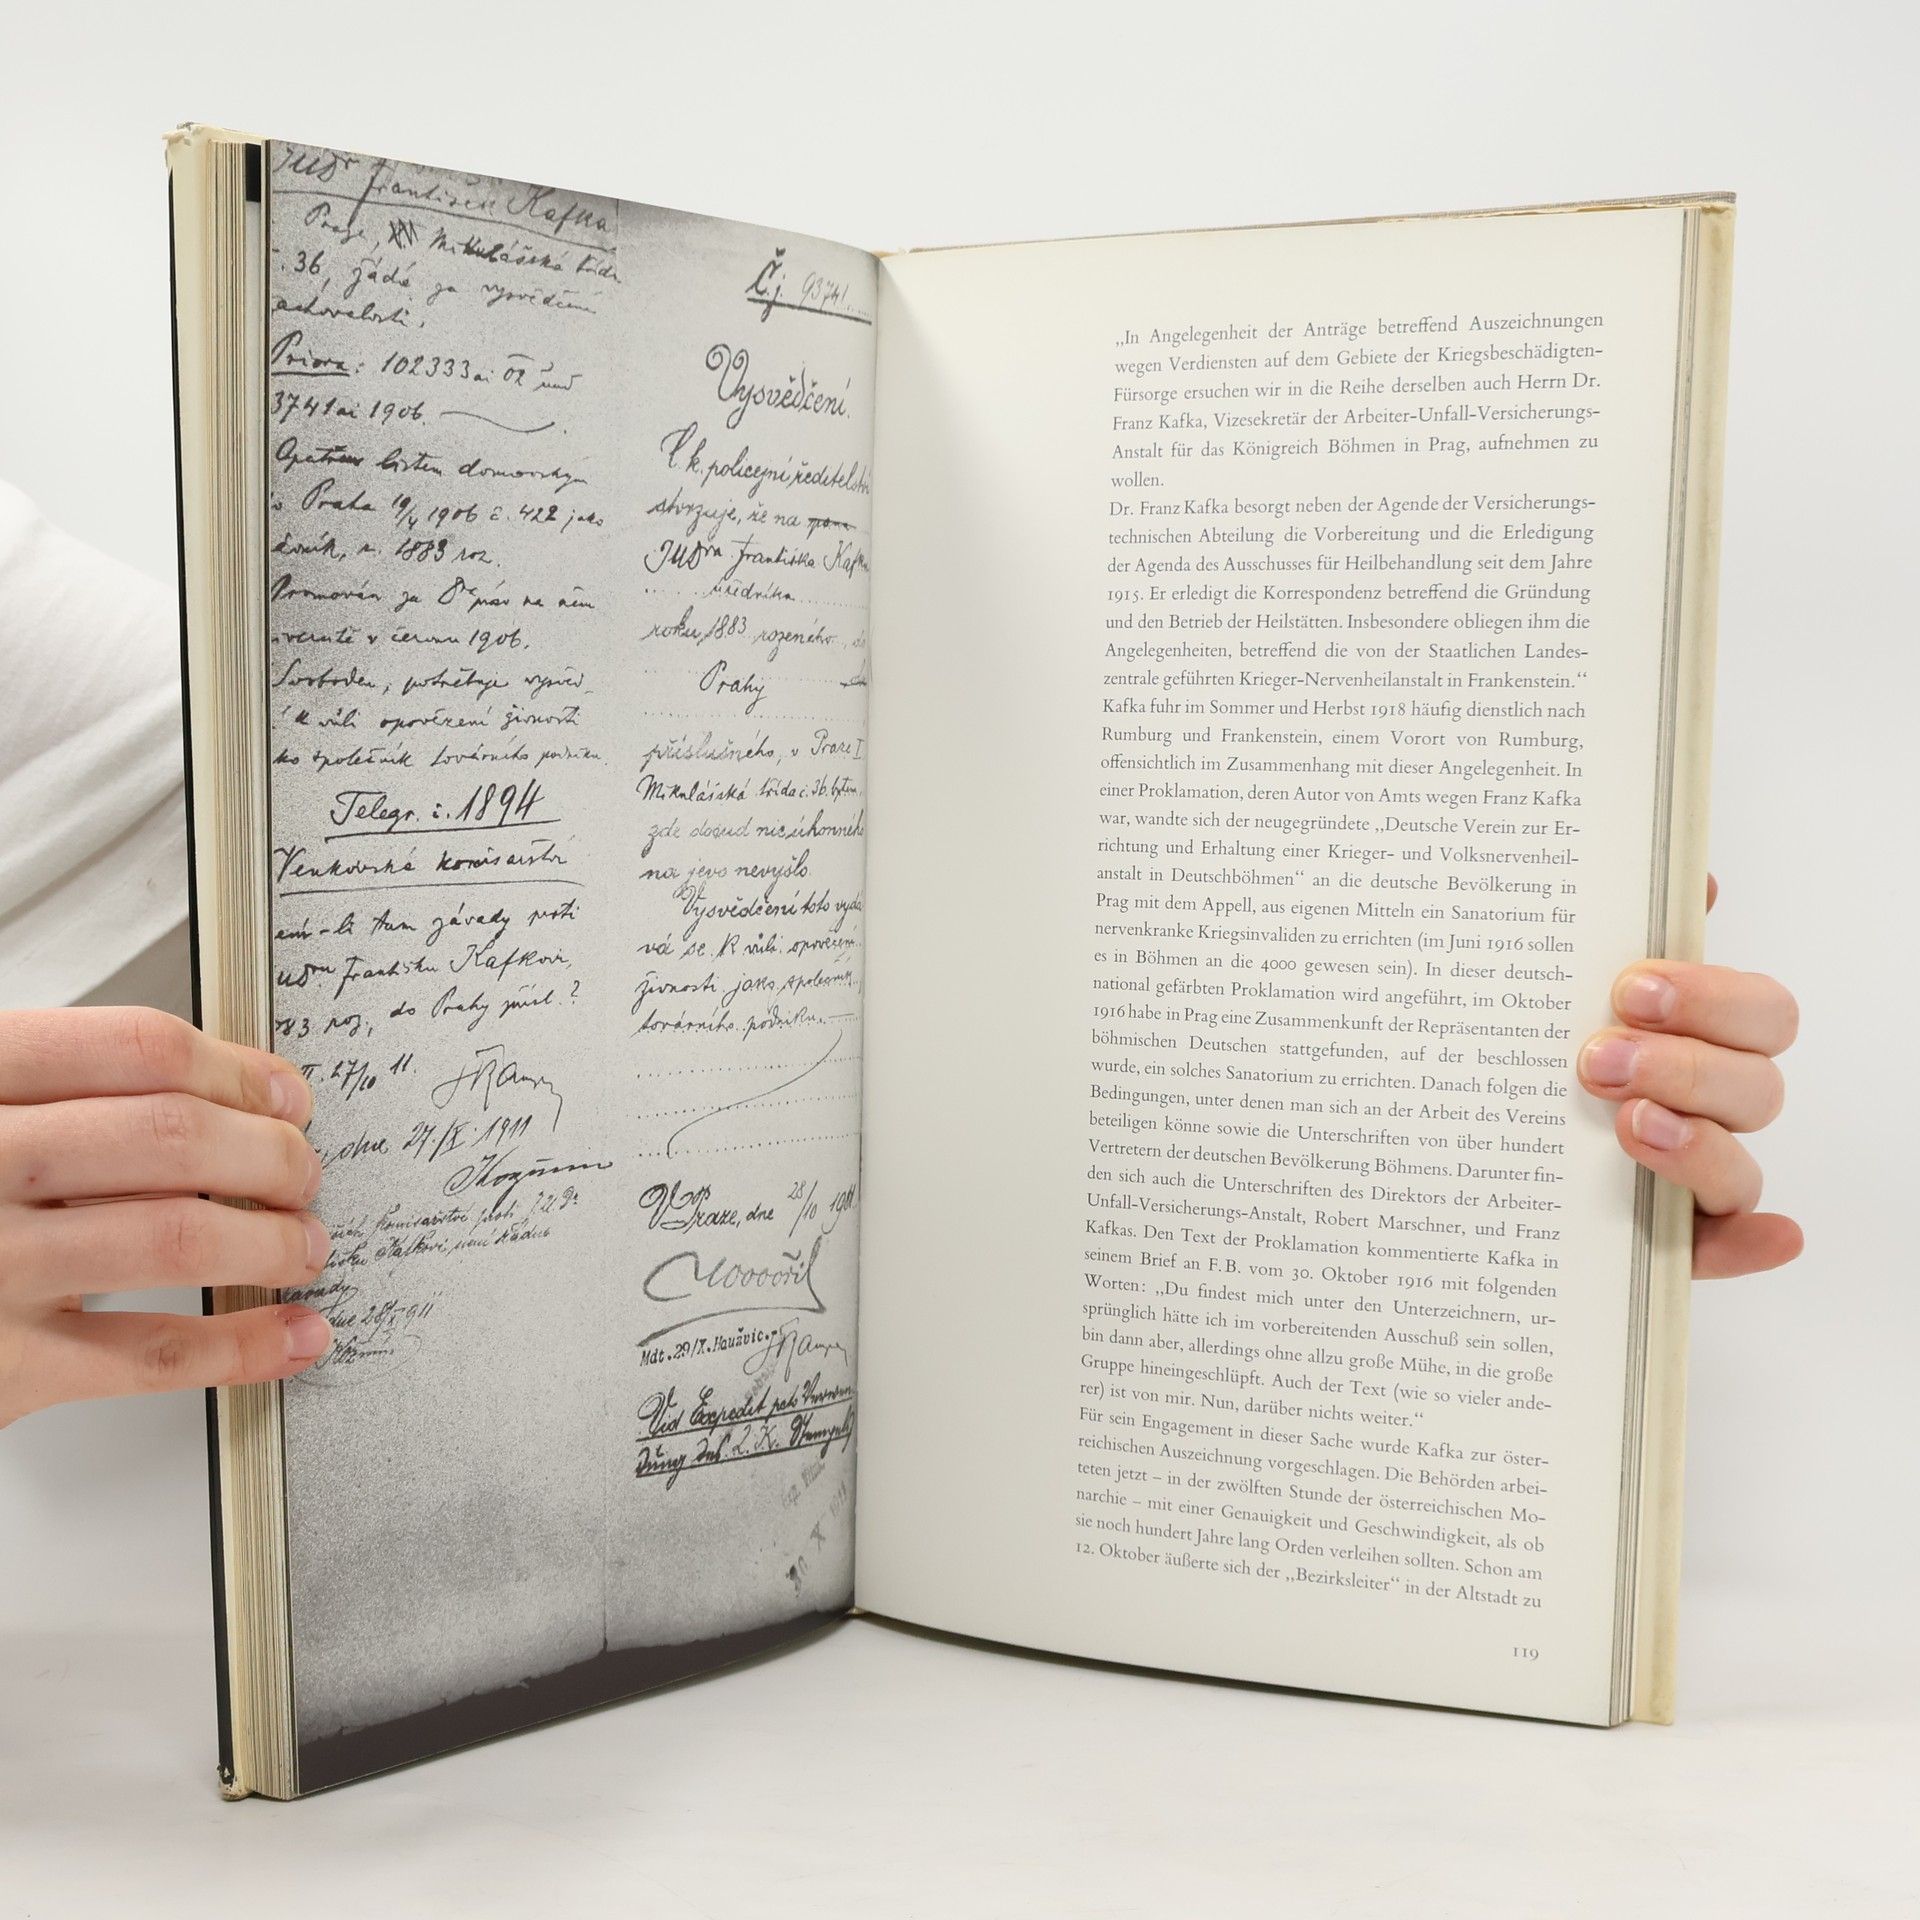 František Kafka
Mikulášská
36, žádá za vysvědčení
Priora: 102333 ai
3741 ai 1906.
listem domovským
Praha 19/4 1906 č. 422 jako
1883
na
v červnu 1906.
potřebuje
opovězení živnosti
společník továrního podniku
Telegr. č. 1894
Venkovské komisařství
-li tam závady proti
Františku Kafkovi,
do Prahy přísl.?
27/10 11.
dne 27./X. 1911
Č.j. 93741
Vysvědčení.
C. k. policejní ředitelství
stvrzuje, že na
JUDra. Františka Kafku
úředníka
roku 1883 rozeného, do
Prahy
příslušného, v Praze I
Mikulášská třída č. 36. bytem,
zde dosud nic úhonného
na jevo nevyšlo.
Vysvědčení toto vydá
vá se k vůli opovězení
živnosti jako společník
továrního podniku.
Praze, dne 28/10 1911
Mdt. 29/X. Houžvic.
Vid Expedit
„In Angelegenheit der Anträge betreffend Auszeichnungen
wegen Verdiensten auf dem Gebiete der Kriegsbeschädigten-
Fürsorge ersuchen wir in die Reihe derselben auch Herrn Dr.
Franz Kafka, Vizesekretär der Arbeiter-Unfall-Versicherungs-
Anstalt für das Königreich Böhmen in Prag, aufnehmen zu
wollen.
Dr. Franz Kafka besorgt neben der Agende der Versicherungs-
technischen Abteilung die Vorbereitung und die Erledigung
der Agenda des Ausschusses für Heilbehandlung seit dem Jahre
1915. Er erledigt die Korrespondenz betreffend die Gründung
und den Betrieb der Heilstätten. Insbesondere obliegen ihm die
Angelegenheiten, betreffend die von der Staatlichen Landes-
zentrale geführten Krieger-Nervenheilanstalt in Frankenstein.“
Kafka fuhr im Sommer und Herbst 1918 häufig dienstlich nach
Rumburg und Frankenstein, einem Vorort von Rumburg,
offensichtlich im Zusammenhang mit dieser Angelegenheit. In
einer Proklamation, deren Autor von Amts wegen Franz Kafka
war, wandte sich der neugegründete „Deutsche Verein zur Er-
richtung und Erhaltung einer Krieger- und Volksnervenheil-
anstalt in Deutschböhmen“ an die deutsche Bevölkerung in
Prag mit dem Appell, aus eigenen Mitteln ein Sanatorium für
nervenkranke Kriegsinvaliden zu errichten (im Juni 1916 sollen
es in Böhmen an die 4000 gewesen sein). In dieser deutsch-
national gefärbten Proklamation wird angeführt, im Oktober
1916 habe in Prag eine Zusammenkunft der Repräsentanten der
böhmischen Deutschen stattgefunden, auf der beschlossen
wurde, ein solches Sanatorium zu errichten. Danach folgen die
Bedingungen, unter denen man sich an der Arbeit des Vereins
beteiligen könne sowie die Unterschriften von über hundert
Vertretern der deutschen Bevölkerung Böhmens. Darunter fin-
den sich auch die Unterschriften des Direktors der Arbeiter-
Unfall-Versicherungs-Anstalt, Robert Marschner, und Franz
Kafkas. Den Text der Proklamation kommentierte Kafka in
seinem Brief an F. B. vom 30. Oktober 1916 mit folgenden
Worten: „Du findest mich unter den Unterzeichnern, ur-
sprünglich hätte ich im vorbereitenden Ausschuß sein sollen,
bin dann aber, allerdings ohne allzu große Mühe, in die große
Gruppe hineingeschlüpft. Auch der Text (wie so vieler ande-
rer) ist von mir. Nun, darüber nichts weiter.“
Für sein Engagement in dieser Sache wurde Kafka zur öster-
reichischen Auszeichnung vorgeschlagen. Die Behörden arbei-
teten jetzt – in der zwölften Stunde der österreichischen Mo-
narchie – mit einer Genauigkeit und Geschwindigkeit, als ob
sie noch hundert Jahre lang Orden verleihen sollten. Schon am
12. Oktober äußerte sich der „Bezirksleiter“ in der Altstadt zu
119